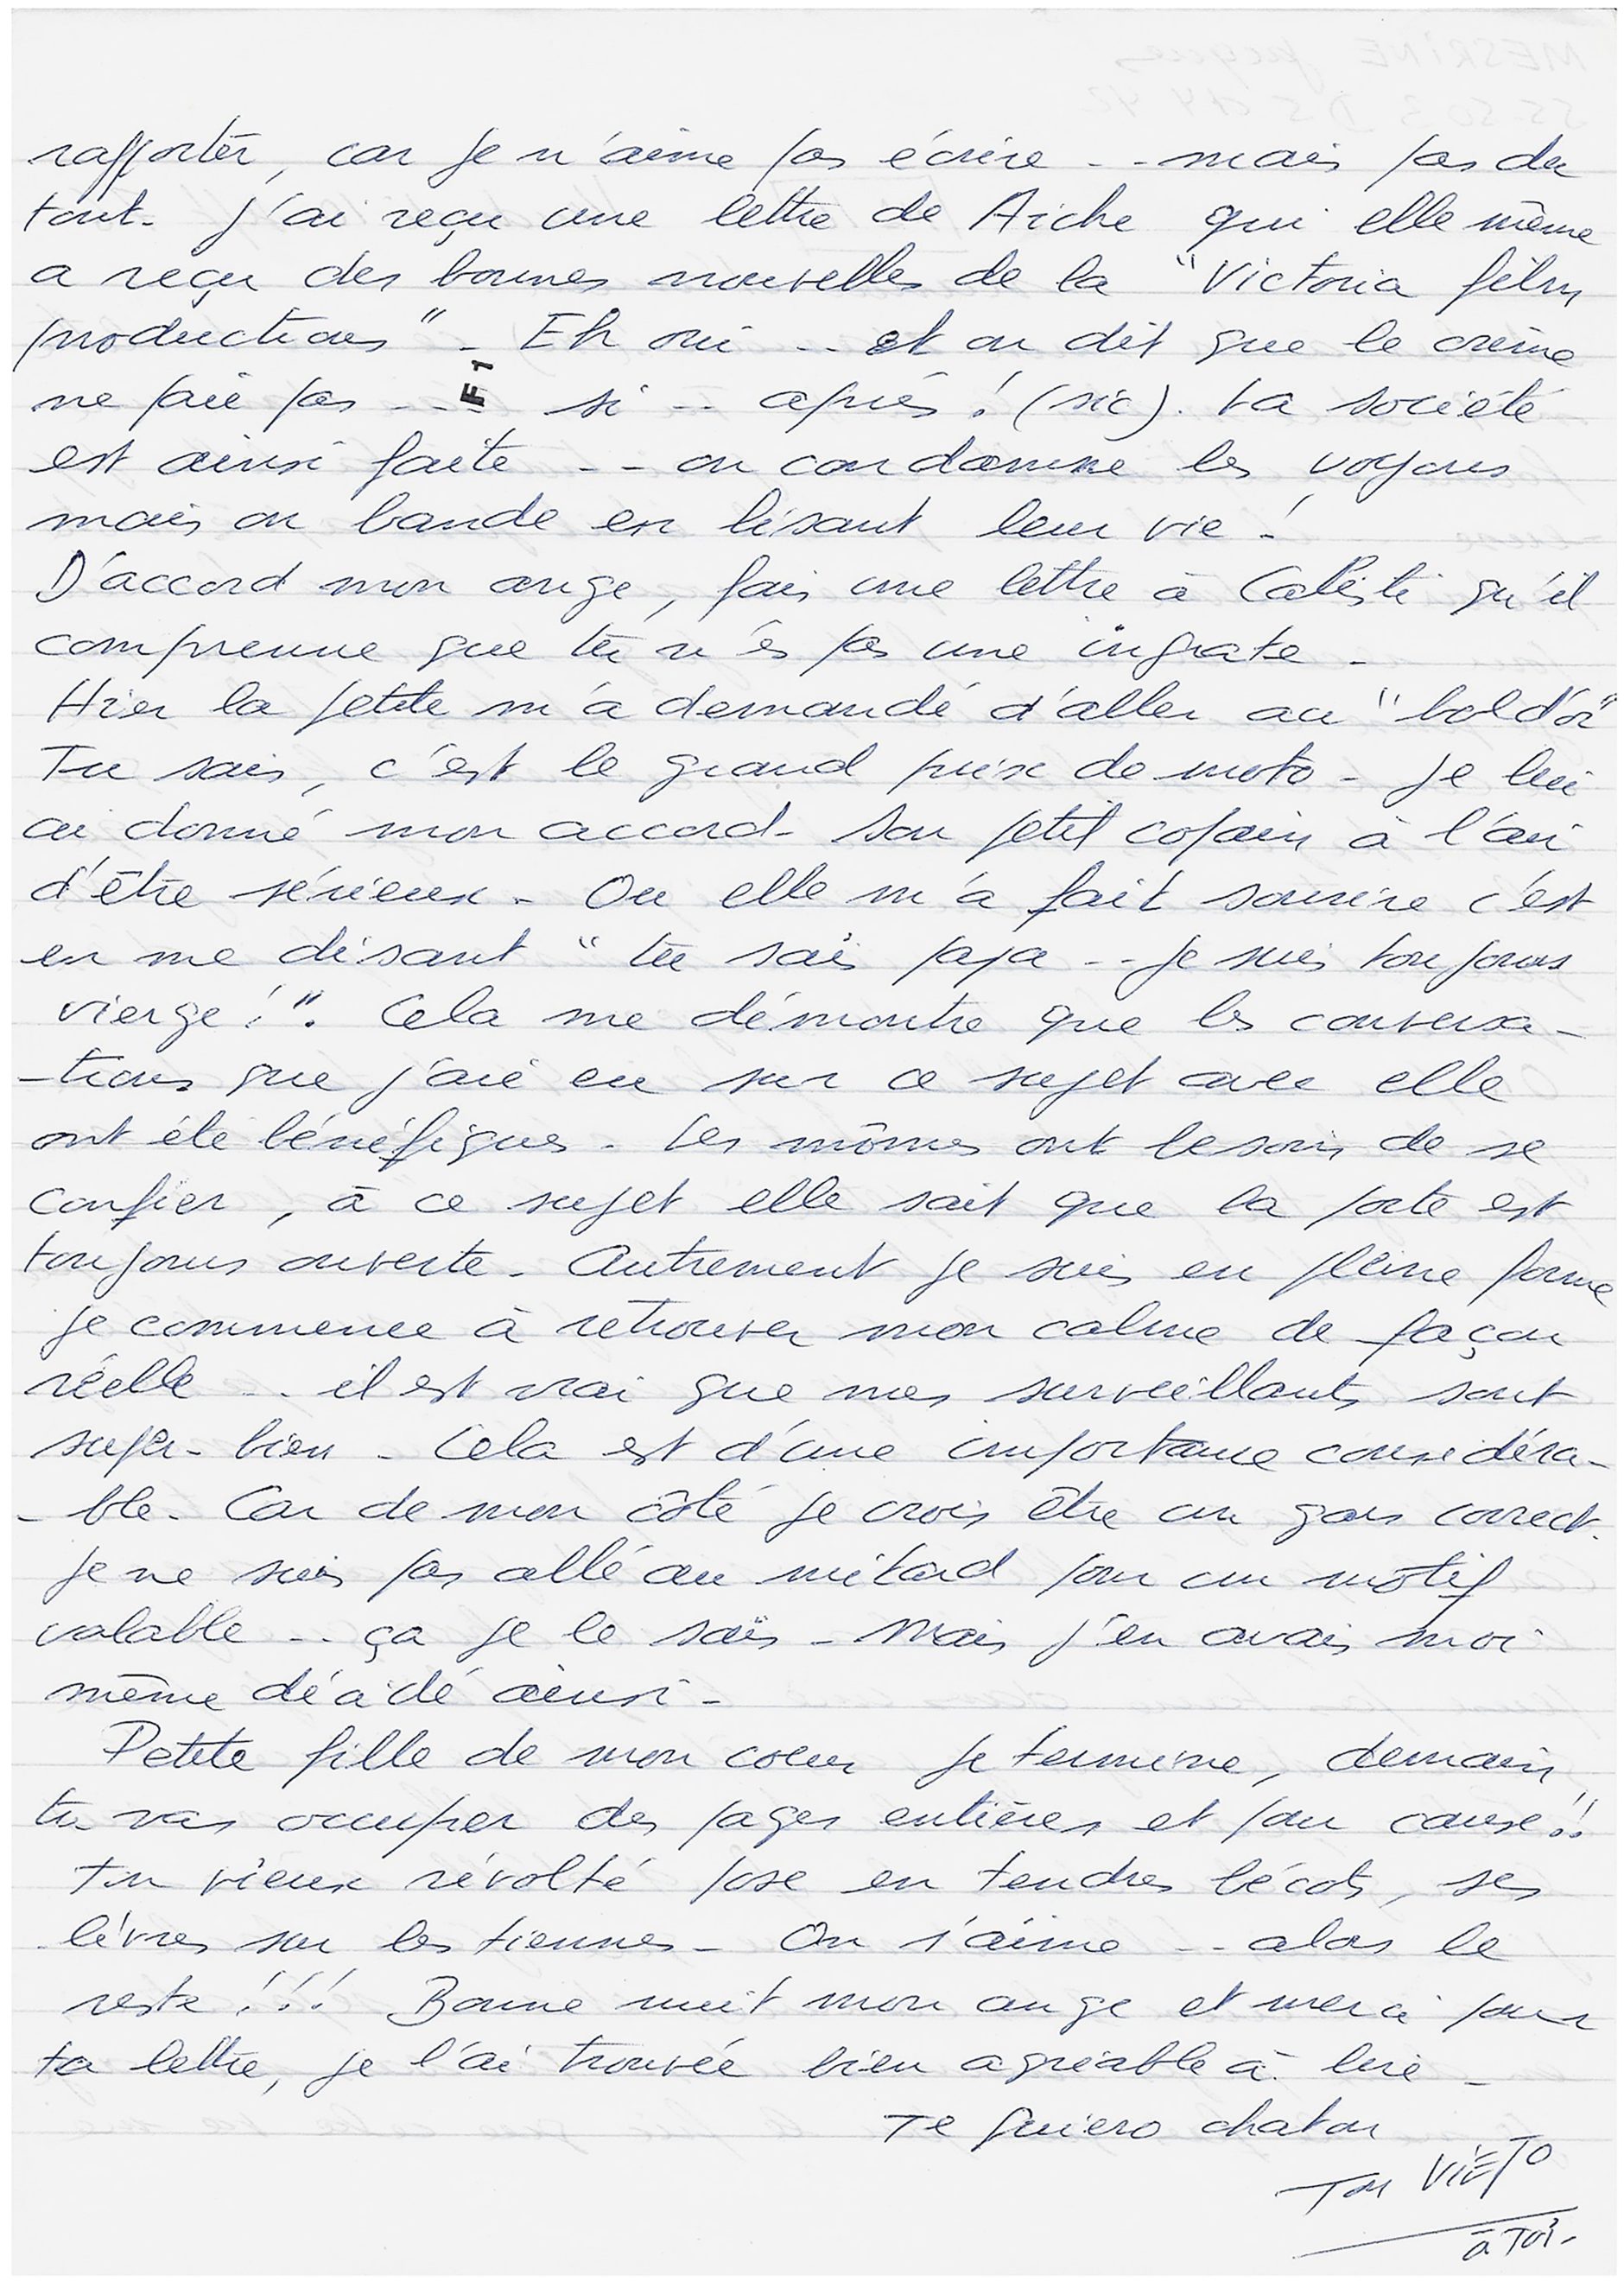 rapporter, car je n'aime pas écrire -- mais pas du
tout. J'ai reçu une lettre de Aiche qui elle même
a reçu des bonnes nouvelles de la "Victoria films
productions" - Eh oui -- et on dit que le crime
ne paie pas --- si -- après ! (sic). La société
est ainsi faite -- on condamne les voyous
mais on bande en lisant leur vie !
D'accord mon ange, fais une lettre à qu'il
comprenne que tu n'es pas une ingrate -
Hier la petite m'a demandé d'aller au "bol d'or"
Tu sais, c'est le grand prix de moto - Je lui
ai donné mon accord - Son petit copain à l'air
d'être sérieux - Ou elle m'a fait sourire c'est
en me disant "tu sais papa -- je suis toujours
vierge !". Cela me démontre que les conversa-
-tions que j'aie eu sur ce sujet avec elle
ont été bénéfiques - Les mômes ont besoin de se
confier, à ce sujet elle sait que la porte est
toujours ouverte - Autrement je suis en pleine forme
je commence à retrouver mon calme de façon
réelle -- il est vrai que mes surveillants sont
super-bien - Cela est d'une importance considéra-
-ble - Car de mon côté je crois être un gars correct.
Je ne suis pas allé au mitard pour un motif
valable -- ça je le sais - Mais j'en avais moi
même décidé ainsi -
Petite fille de mon coeur je termine, demain
tu vas occuper des pages entières et pour cause !!
Ton vieux révolté pose en tendres bécots, ses
lèvres sur les tiennes - On s'aime -- alors le
reste !!! Bonne nuit mon ange et merci pour
ta lettre, je l'ai trouvée bien agréable à lire -
Te quiero chaton
Ton VIEJO
à Toi -
F1
MESRINE Jacques